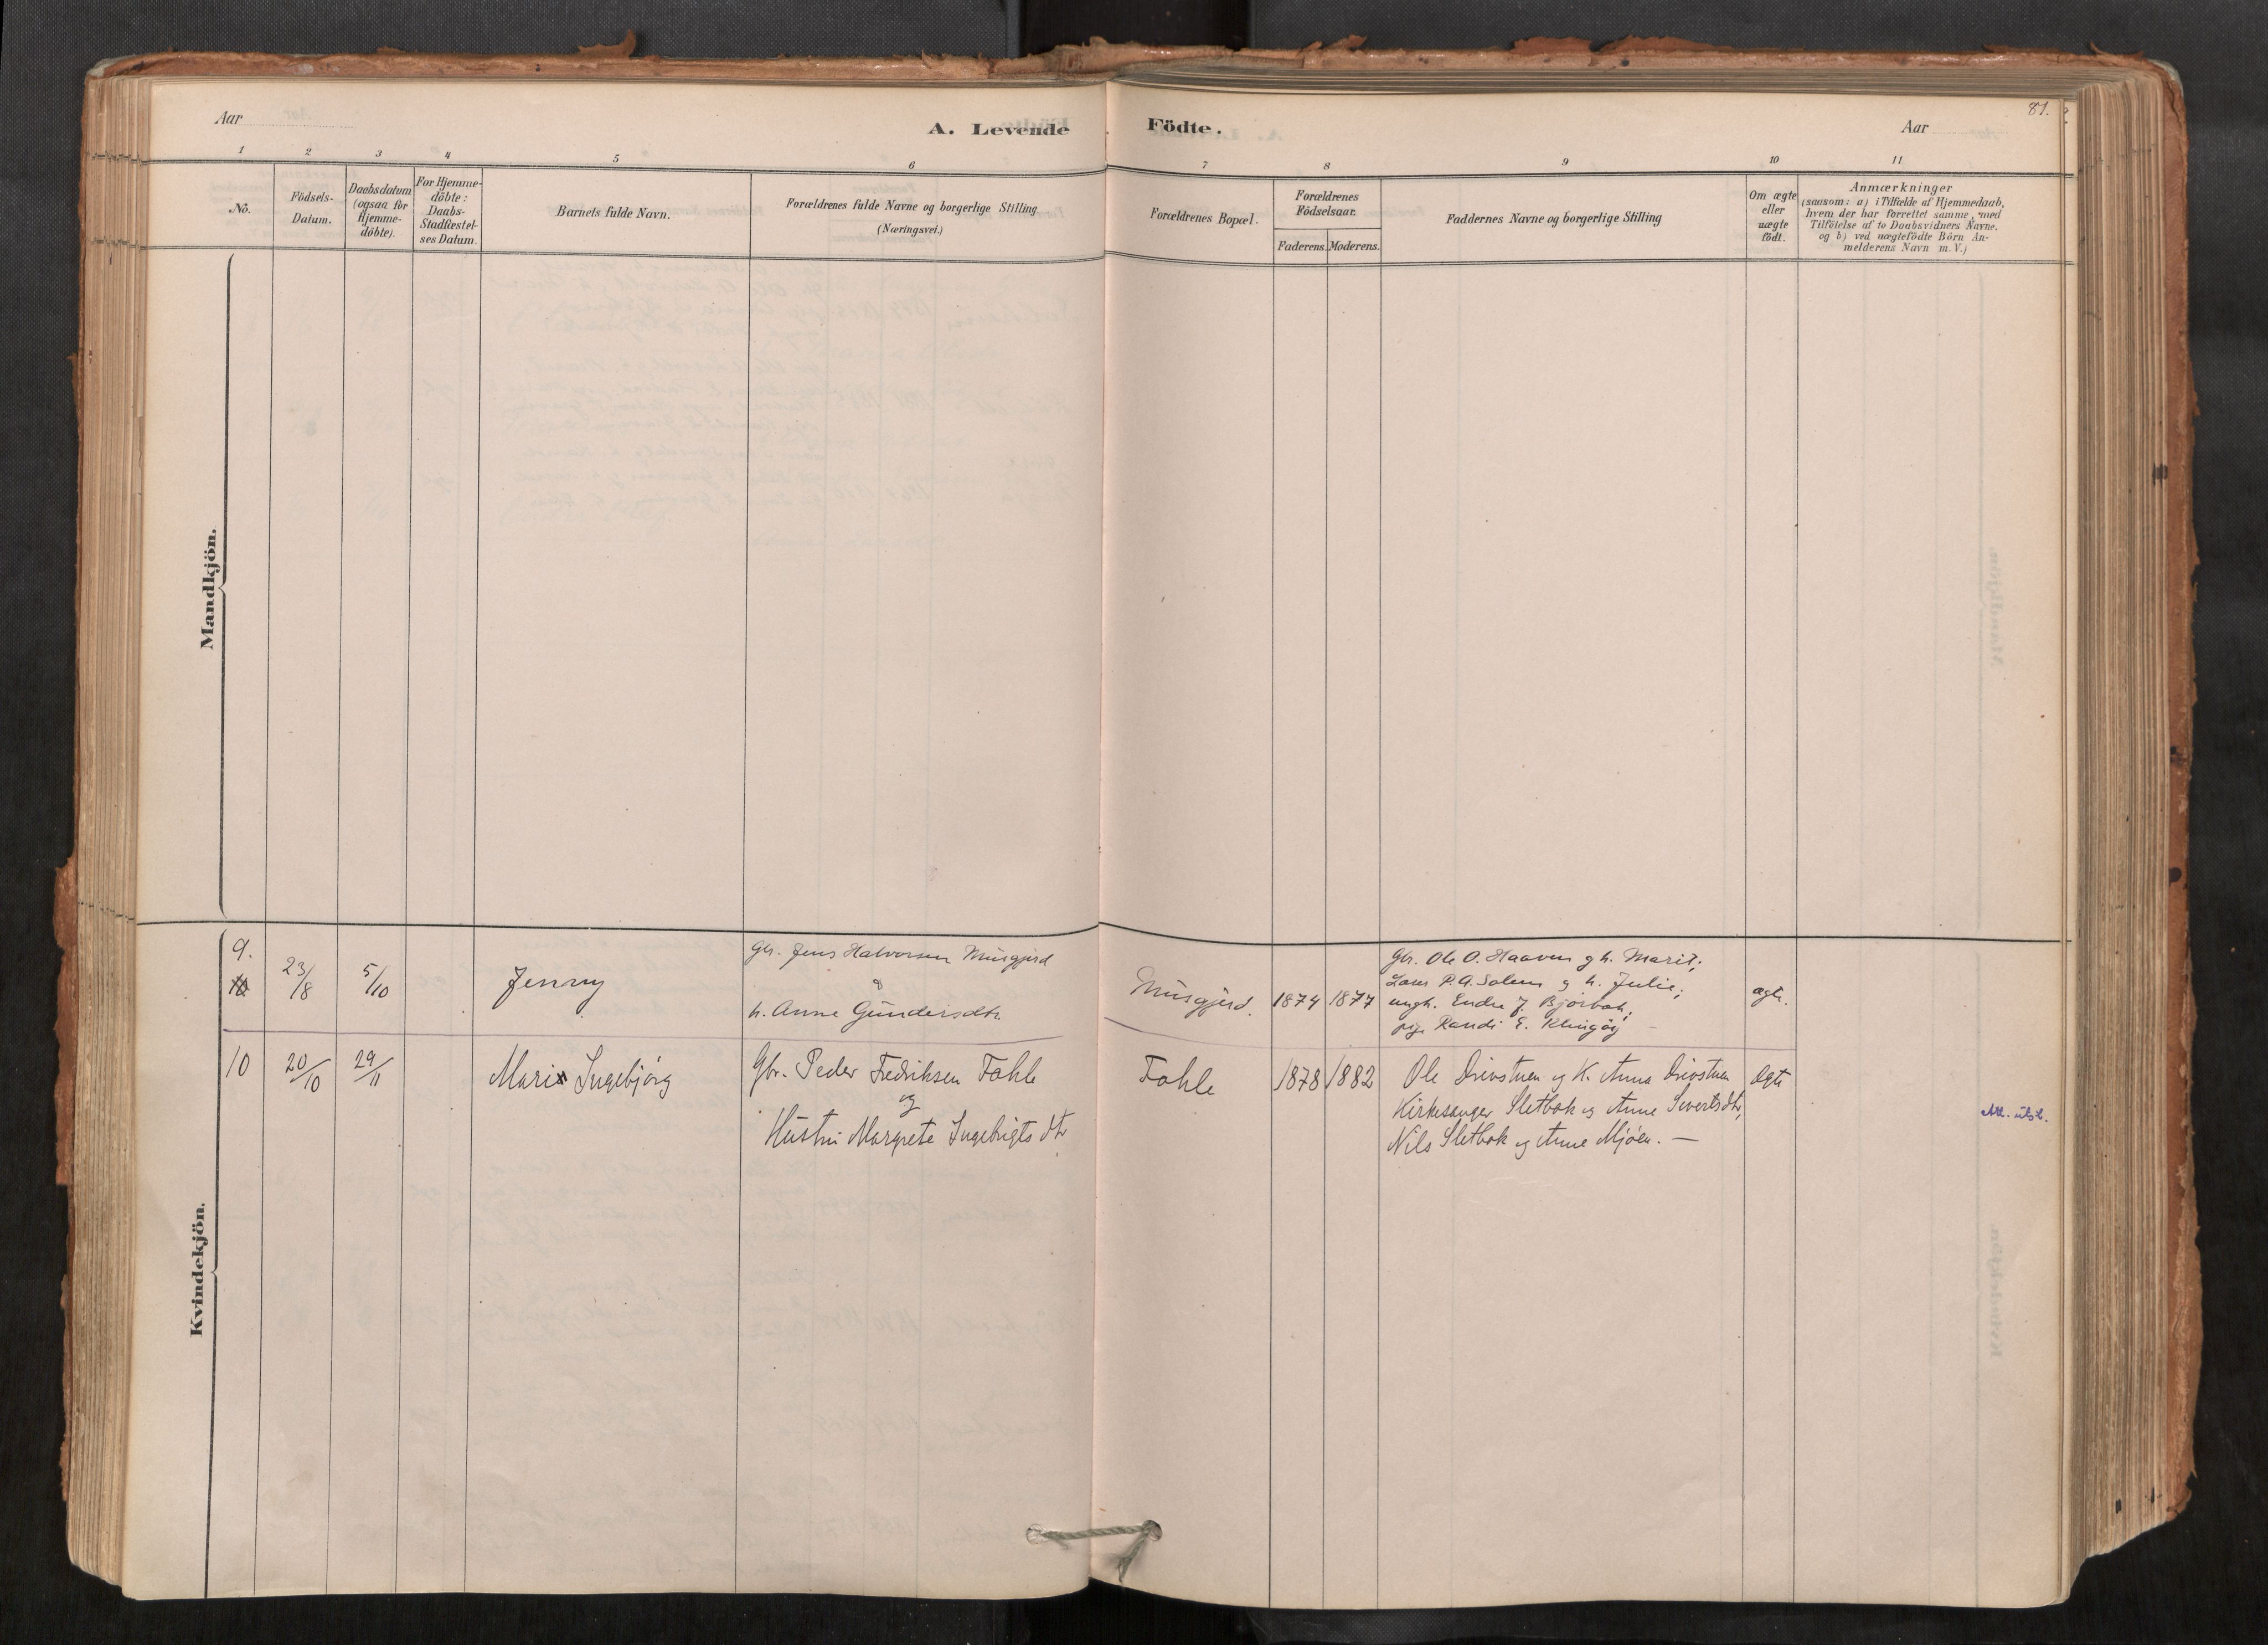 81.
Aar
A. Levende
Födte.
Aar
1 2 3 4 5 6 7 8 9 10 11
No.
Födsels-
Datum.
Daabsdatum
(ogsaa for
Hjemme-
döbte).
For Hjemme-
döbte:
Daabs-
Stadfæstel-
ses Datum.
Barnets fulde Navn.
Forældrenes fulde Navne og borgerlige Stilling
(Næringsvei.)
Forældrenes Bopæl.
Forældrenes
Födselsaar.
Faderens. Moderens.
Faddernes Navne og borgerlige Stilling
Om ægte
eller
uægte
födt.
Anmærkninger
(saasom: a) i Tilfælde af Hjemmedaab,
hvem der har forrettet samme, med
Tilföielse af to Daabsvidners Navne.
og b) ved uægtefödte Börn An-
melderens Navn m. V.)
Mandkjön.
Kvindekjön.
9.
10
23/8
5/10
Jenny
Gbr. Jens Halvorsen Musgjerd
&
h. Anne Gundersdtr.
Musgjerd.
1874
1877
Gbr. Ole O. Haaven g h. Marit;
Laur P.A. Solem g h. Julie;
ungk. Endre J. Bjørbak;
pig. Randi E. Klingøy
ægt.
10
20/10
29/11
Mari Ingebjörg
Gbr. Peder Fredriksen Fahle
og
Hustru Margrete Ingebrigts dtr
Fahle
1878
1882
Ole Drivstuen og K. Anna Drivstuen
Kirkesanger Sletbak og Anne Sivertsdtr,
Nils Sletbak og Anne Mjöen. —
Ægte
Att. utst.